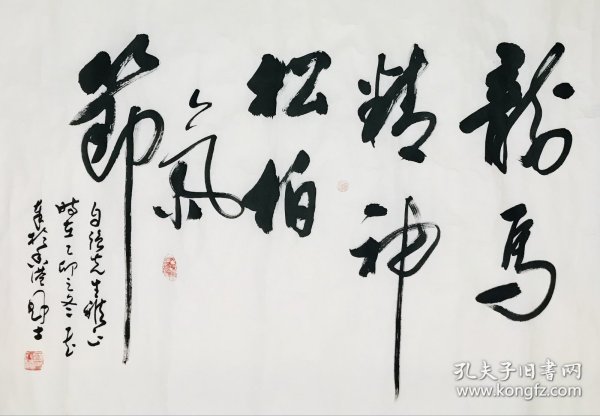 龍馬
精神
松柏
氣
節
自強先生雅正
時在乙卯之冬
孔夫子旧书网
www.kongfz.com